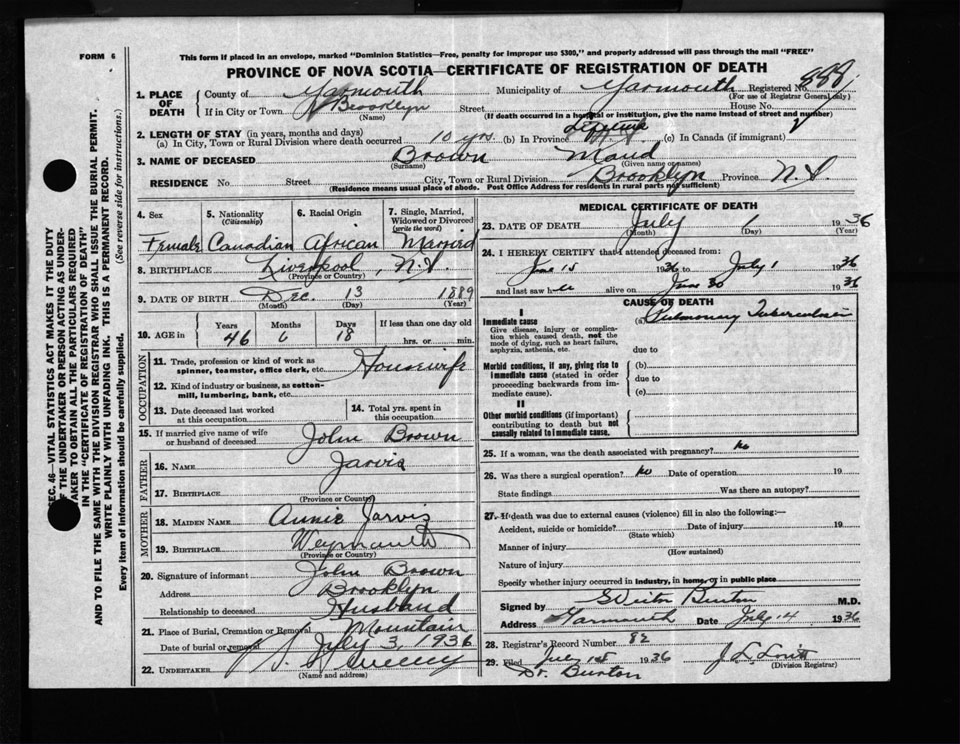 FORM 6
This form if placed in an envelope, marked "Dominion Statistics—Free, penalty for improper use $300," and properly addressed will pass through the mail "FREE"
PROVINCE OF NOVA SCOTIA—CERTIFICATE OF REGISTRATION OF DEATH
1. PLACE OF DEATH County of Yarmouth Municipality of Yarmouth Registered No. 888
(For use of Registrar General only)
If in City or Town Brooklyn Street House No.
(Name) (If death occurred in a hospital or institution, give the name instead of street and number)
2. LENGTH OF STAY (in years, months and days)
(a) In City, Town or Rural Division where death occurred 10 yrs. (b) In Province Lifetime (c) In Canada (if immigrant)
3. NAME OF DECEASED Brown Maud
(Surname) (Given name or names)
RESIDENCE No Street City, Town or Rural Division Brooklyn Province N.S.
(Residence means usual place of abode. Post Office Address for residents in rural parts not sufficient)
4. Sex 5. Nationality (Citizenship) 6. Racial Origin 7. Single, Married, Widowed or Divorced (write the word)
Female Canadian African Married
8. BIRTHPLACE Liverpool, N.S.
(Province or Country)
9. DATE OF BIRTH Dec. 13 1889
(Month) (Day) (Year)
10. AGE in Years Months Days If less than one day
46 6 18 hrs. or min.
OCCUPATION
11. Trade, profession or kind of work as spinner, teamster, office clerk, etc. Housewife
12. Kind of industry or business, as cotton-mill, lumbering, bank, etc.
13. Date deceased last worked at this occupation
14. Total yrs. spent in this occupation
15. If married give name of wife or husband of deceased John Brown
FATHER
16. NAME Jarvis
17. BIRTHPLACE
(Province or Country)
MOTHER
18. MAIDEN NAME Annie Jarvis
19. BIRTHPLACE Weymouth
(Province or Country)
20. Signature of informant John Brown
Address Brooklyn
Relationship to deceased Husband
21. Place of Burial, Cremation or Removal Mountain
Date of burial or removal July 3, 1936
22. UNDERTAKER Sweeny
(Name and address)
MEDICAL CERTIFICATE OF DEATH
23. DATE OF DEATH July 1 1936
(Month) (Day) (Year)
24. I HEREBY CERTIFY that I attended deceased from:
June 15 1936 to July 1 1936
and last saw h er alive on June 30 1936
CAUSE OF DEATH
I
Immediate cause (a) Pulmonary Tuberculosis
Give disease, injury or complication which caused death, not the mode of dying, such as heart failure, asphyxia, asthenia, etc.
due to
Morbid conditions, if any, giving rise to immediate cause (stated in order proceeding backwards from immediate cause).
(b)
due to
(c)
II
Other morbid conditions (if important) contributing to death but not causally related to immediate cause.
25. If a woman, was the death associated with pregnancy? no
26. Was there a surgical operation? no Date of operation 19
State findings Was there an autopsy?
27. If death was due to external causes (violence) fill in also the following:—
Accident, suicide or homicide? Date of injury 19
(State which)
Manner of injury
(How sustained)
Nature of injury
Specify whether injury occurred in industry, in home, or in public place
Signed by Burton M.D.
Address Yarmouth Date July 14 1936
28. Registrar's Record Number 82
29. Filed 1936
(Division Registrar)
Dr. Burton
SEC. 46—VITAL STATISTICS ACT MAKES IT THE DUTY
OF THE UNDERTAKER OR PERSON ACTING AS UNDER-
TAKER TO OBTAIN ALL THE PARTICULARS REQUIRED
IN THE "CERTIFICATE OF REGISTRATION OF DEATH"
AND TO FILE THE SAME WITH THE DIVISION REGISTRAR WHO SHALL ISSUE THE BURIAL PERMIT.
WRITE PLAINLY WITH UNFADING INK. THIS IS A PERMANENT RECORD.
Every item of information should be carefully supplied. (See reverse side for instructions.)